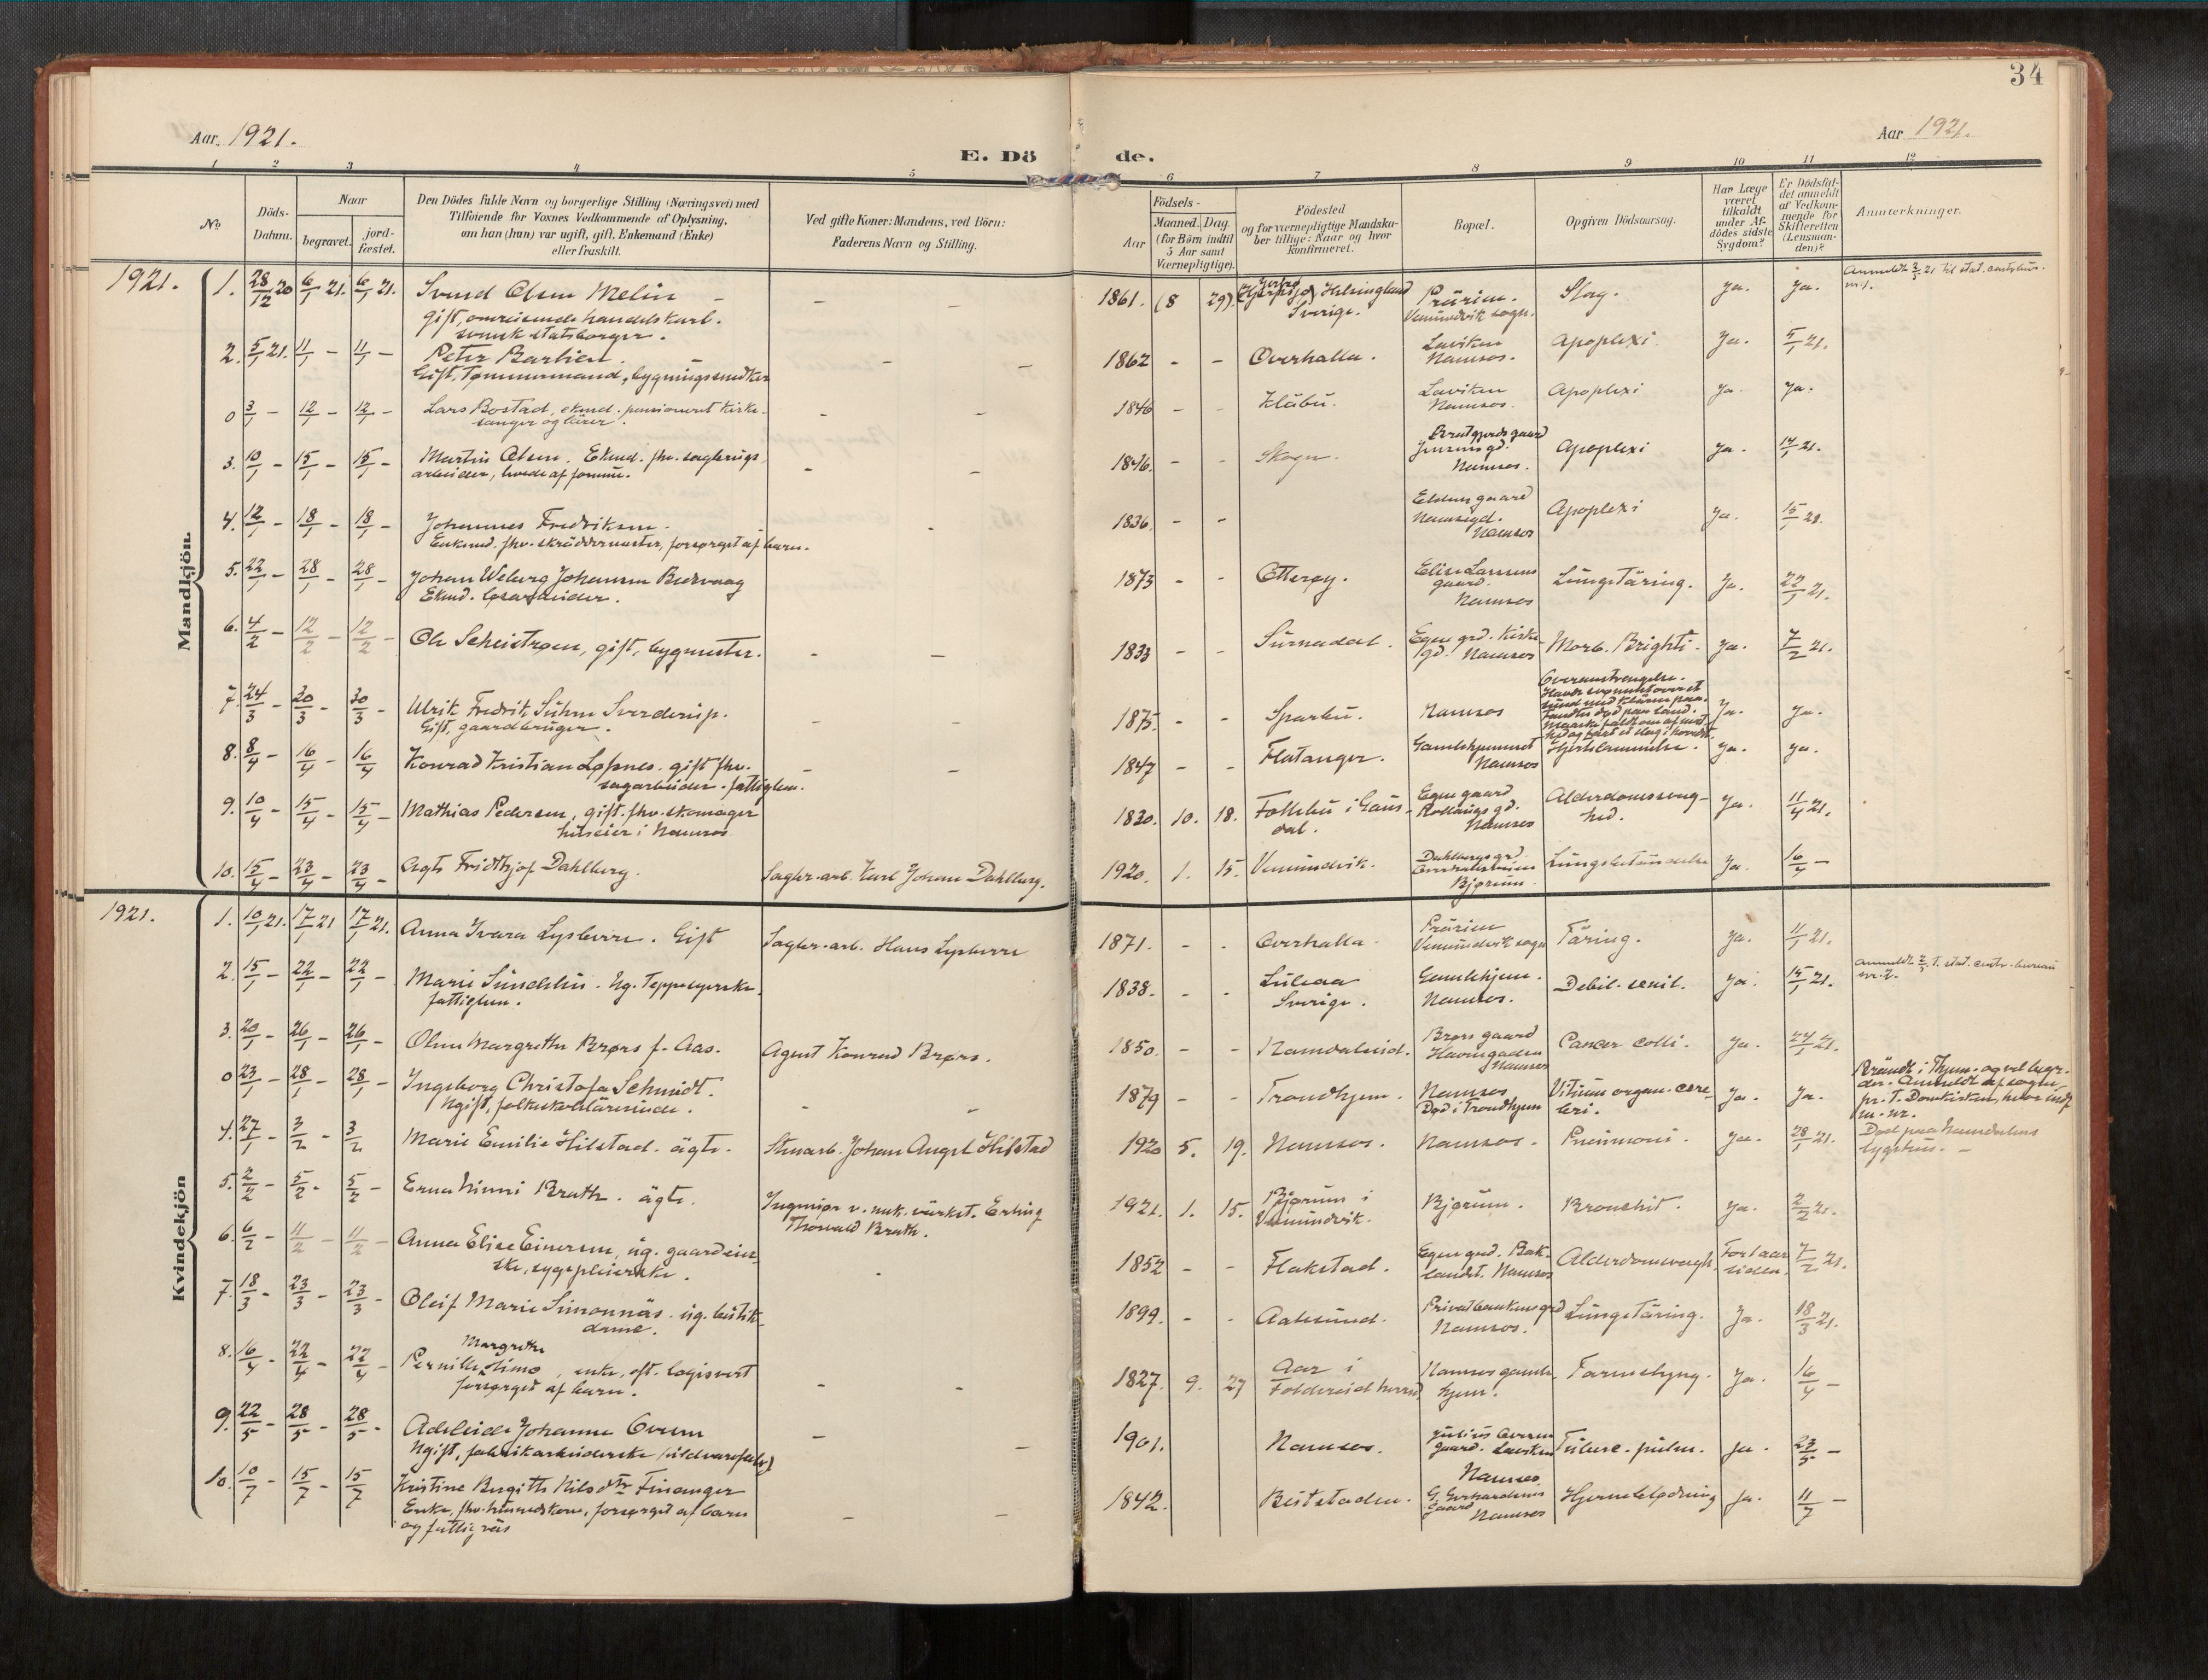 34
Aar 1921.
Aar 1921.
E. Dö de.
1 2 3 4 5 6 7 8 9 10 11 12
No.
Döds-
Datum.
Naar
begravet.
jord-
fæstet.
Den Dödes fulde Navn og borgerlige Stilling (Næringsvei) med
Tilföiende for Voxnes Vedkommende af Oplysning,
om han (hun) var ugift, gift, Enkemand (Enke)
eller fraskilt.
Ved gifte Koner: Mandens, ved Börn:
Faderens Navn og Stilling.
Födsels-
Aar
Maaned. Dag.
(for Börn indtil
5 Aar samt
Værnepligtige).
Födested
og for værnepligtige Mandska-
ber tillige: Naar og hvor
konfirmeret.
Bopæl.
Opgiven Dödsaarsag.
Har Læge
været
tilkaldt
under Af-
dödes sidste
Sygdom?
Er Dödsfal-
det anmeldt
af Vedkom-
mende for
Skifteretten
(Lensman-
den)?
Anmerkninger.
Mandkjön.
1921.
1. 28/12 20 6/1 21. 6/1 21. Svend Olsen Melin - - - 1861. (8 29). Helsingland Prärien. Slag. ja. ja. Anmeldt 2/5 21 til stat. centrbur.
gift, omreisende handelskarl. Sverige. Vemundvik sogn. nr. 1.
svensk statsborger.
2. 5/1 21. 11/1 - 11/1 - Peter Barlien. - - - 1862 - - Overhalla. Laviken Apoplexi. Ja. 5/1 21.
Gift. Tømmermand, bygningssnedker Namsos.
0 3/1 - 12/1 - 12/1 - Lars Bostad, ekmd. pensioneret kirke- - - 1846 - - Kläbu. Laviken Apoplexi Ja. Ja.
sanger og lärer. Namsos.
3. 10/1 - 15/1 - 15/1 - Martin Olsen. Ekmd. fhv. sagbrugs- - - 1846. - - Skogn. Jensensgd. Apoplexi Ja. 14/1 21.
arbeider, levede af formue. Namsos.
4. 12/1 - 18/1 - 18/1 - Johannes Fredriksen. - 1836. - - Eldens gaard Apoplexi Ja. 15/1 21.
Enkemd. fhv. skräddermester, forsørget af barn. Namsos
5. 22/1 - 28/1 - 28/1 - Johan Weberg Johansen Buvaag 1873 - - Otterøy. Elise Larsens Lungetäring. Ja. 22/1 21.
Ekmd. løsarbeider. gaard. Namsos
6. 4/2 - 12/2 - 12/2 - Ole Scheistrøen, gift, bygmester. - - 1833 - - Surnadal. Egen grd. Kirke- Morb. Brighti. Ja. 7/2 21.
gd. Namsos
7. 24/3 - 30/3 - 30/3 - Ulrik Fredrik Suhm Sverdrup. - - 1875 - - Sparbu. Namsos Overanstrengelse. Ja. Ja.
Gift, gaardbruger. Havde svømmet over et
sund med klärne paa.
Fandtes død paa land.
8. 8/4 - 16/4 - 16/4 Konrad Kristian Løfsnes. gift fhv. - - 1847 - - Flatanger. Gamlehjemmet Hjertelammelse. ja. ja.
sagarbeider. fattiglem. Namsos
9. 10/4 - 15/4 - 15/4 - Mathias Pedersen, gift. fhv. skomager 1830. 10. 18. Follebu i Gaus- Egen gaard Alderdomssvag- Ja. 11/4 21.
huseier i Namsos dal. Namsos hed.
10. 15/4 - 23/4 - 23/4 - Agte Fridthjof Dahlberg. Sagbr. arb. Karl Johan Dahlberg. 1920. 1. 15. Vemundvik. Dahlbergs grd. Lungebetändelse Ja. 16/4 -
Bjørum
Kvindekjön
1921.
1. 10/1 21. 17/1 21 17/1 21. Anna Ivara Lysberre. Gift Sagbr. arb. Hans Lysberre 1871. - - Overhalla. Prärien Täring. ja. 11/1 21.
Vemundvik sogn
2. 15/1 - 22/1 - 22/1 - Marie Sundelin. Ug. Teppesyerske. 1838. - - Luleaa Gamlehjem. Debil. senil. Ja. 15/1 21. Anmeldt 2/5 t. stat. centr. bureau
fattiglem. Sverige. Namsos. nr. 2.
3. 20/1 - 26/1 - 26/1 - Oline Margrethe Brørs f. Aas. Agent Konrad Brørs. 1850. - - Namdaleid. Brørs gaard Cancer colli. Ja. 24/1 21.
Havnegaden Namsos
0 23/1 - 28/1 - 28/1 - Ingeborg Christofa Schmidt. - - 1879 - - Trondhjem. Namsos Vitium organ. cere- Ja. Ja. Brändt i Thjem. og vel begr.
Ugift, folkskolelärerinde. Død i Trondhjem bri. der. Anmeldt af sogne-
pr. T. Domkirken, hvor indf.
m. nr.
4. 27/1 - 3/2 - 3/2 Marie Emilie Hilstad. ägte. Stenarb. Johan August Hilstad 1920 5. 19. Namsos. Namsos. Pneumoni. Ja. 28/1 21. Død paa Namdalens
sygehus. -
5. 2/2 - 5/2 - 5/2 - Erna Minni Brath. ägte. Ingeniør v. mek. värkst. Erling 1921. 1. 15. Bjørum i Bjørum. Bronchit. Ja. 2/2 21.
Thorvald Brath. Vemundvik.
6. 6/2 - 11/2 - 11/2 - Anna Elise Einersen, ug. gaardeier- - 1852 - - Flakstad. Egen grd. Bak- Alderdomssvagh. For 1 aar 7/2 21.
ske, sygepleierske. landet. Namsos siden.
7. 18/3 - 23/3 - 23/3 - Oleif Marie Simonnäs. ug. butik- 1899. - - Aalesund. Privatbankens grd Lungetäring. Ja. 18/3 21.
dame. Namsos.
8. 16/4 - 22/4 - 22/4 - Pernille Margrethe Simo, enke, eft. logisvert - - 1827. 9. 27 Aar i Namsos gamle- Tarmslyng. Ja. 16/4 -
forsørget af barn. Foldereid herred hjem.
9. 22/5 - 28/5 - 28/5 - Adeleide Johanne Overen - - 1901. Namsos. Julius Overen Tuberc. pulm. Ja. 23/5 -
Ugift, fabrikarbeiderske (uldvarefabr.) gaard. Laviken
Namsos
10. 10/7 - 15/7 - 15/7 Kristine Birgitte Nilsdtr Finanger - - 1842. Beitstaden. G. Gerhardsens Hjerneblødning Ja. 11/7 -
Enke, fhv. husmedskone, forsørget af barn gaard Namsos
og fattigväs